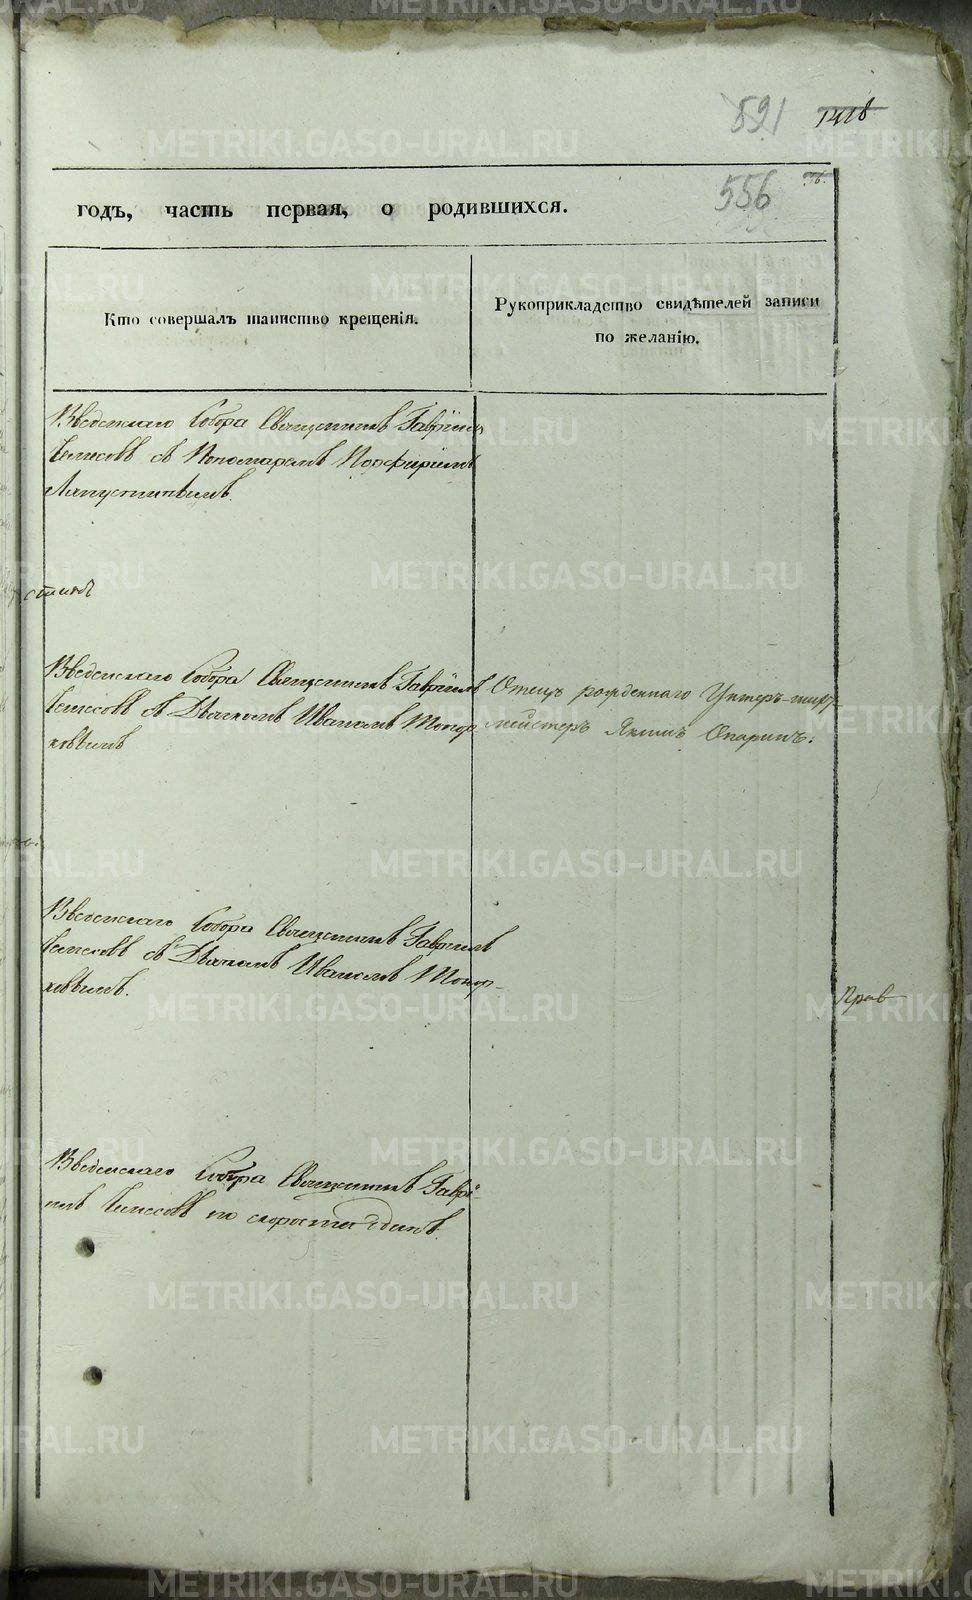 591
1418
556
годъ, часть первая, о родившихся.
Кто совершалъ таинство крещенія.
Рукоприкладство свидѣтелей записи
по желанію.
Введенскаго Собора Священникъ Гавріилъ
съ Пономаремъ Порфиріемъ
Лапустинымъ.
Введенскаго Собора Священникъ Гавріилъ
съ Дьячкомъ Иваномъ Топор-
ковымъ
Отецъ рожденнаго Унтеръ-шихт-
мейстеръ Якимъ Опаринъ.
Введенскаго Собора Священникъ Гавріилъ
съ Дьячкомъ Иваномъ Топор-
ковымъ.
Прав
Введенскаго Собора Священникъ Гаврі-
илъ по скорости одинъ.
METRIKI.GASO-URAL.RU